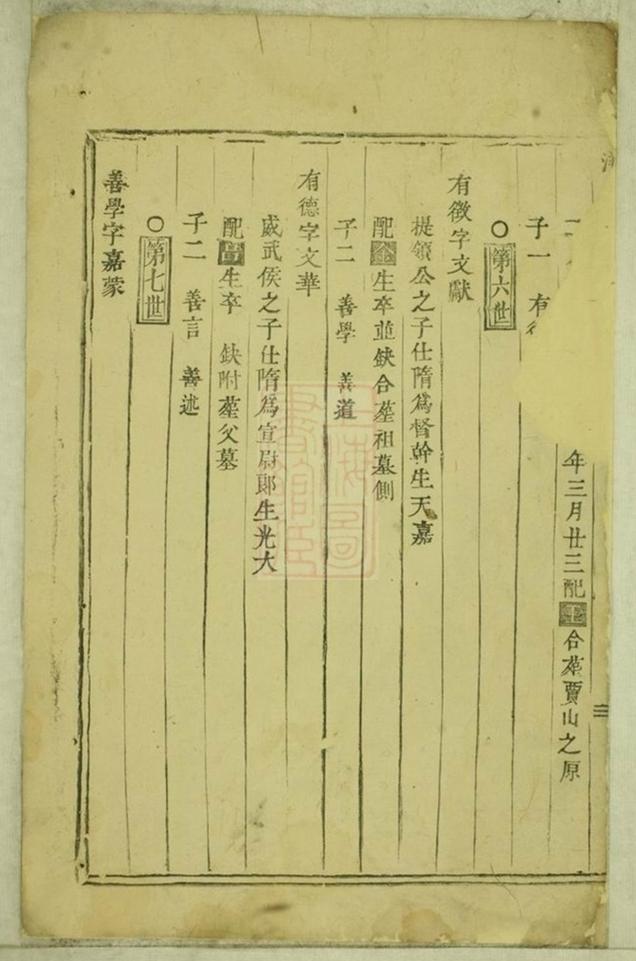 年三月廿三配王合葬賈山之原
子一 有
○第六世
有徵字文獻
提領公之子仕隋爲督幹生天嘉
配金生卒並缺合葬祖墓側
子二 善學 善道
有德字文華
威武侯之子仕隋爲宣尉郎生光大
配生卒 缺附葬父墓
子二 善言 善述
○第七世
善學字嘉蒙